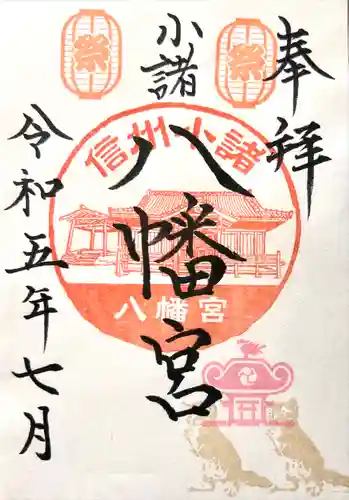 奉拝
小諸
八幡宮
令和五年七月
祭
祭
信州小諸
八幡宮